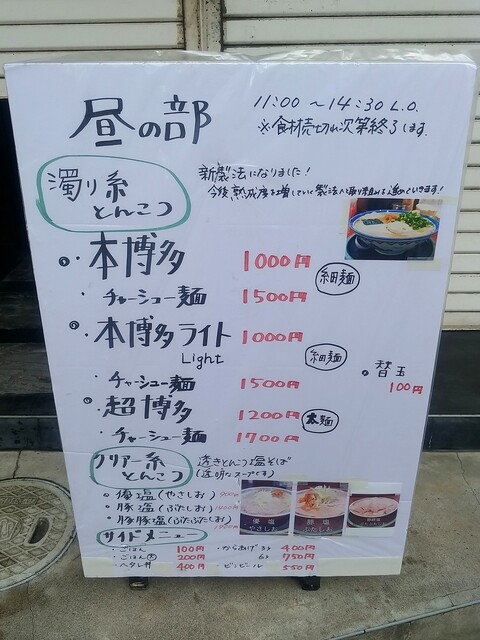 昼の部
11:00 ～14:30 L.O.
※食材売切れ次第終了します。
濁り系
とんこつ
新製法になりました!
今後熟成度を増していく製法に取り組みを進めていきます!
本博多 1000円
細麺
チャーシュー麺 1500円
本博多ライト 1000円
Light
細麺
替玉
100円
チャーシュー麺 1500円
超博多 1200円
太麺
チャーシュー麺 1700円
クリアー系
とんこつ
透きとんこつ塩そば
(透明なスープです)
優塩(やさしお)
豚塩(ぶたしお)
豚豚塩(ぶたぶたしお)
優塩
やさしお
豚塩
ぶたしお
サイドメニュー
ごはん 100円 ・からあげ 3ヶ 400円
ごはん 大 200円 6ヶ 750円
400円 ビンビール 550円